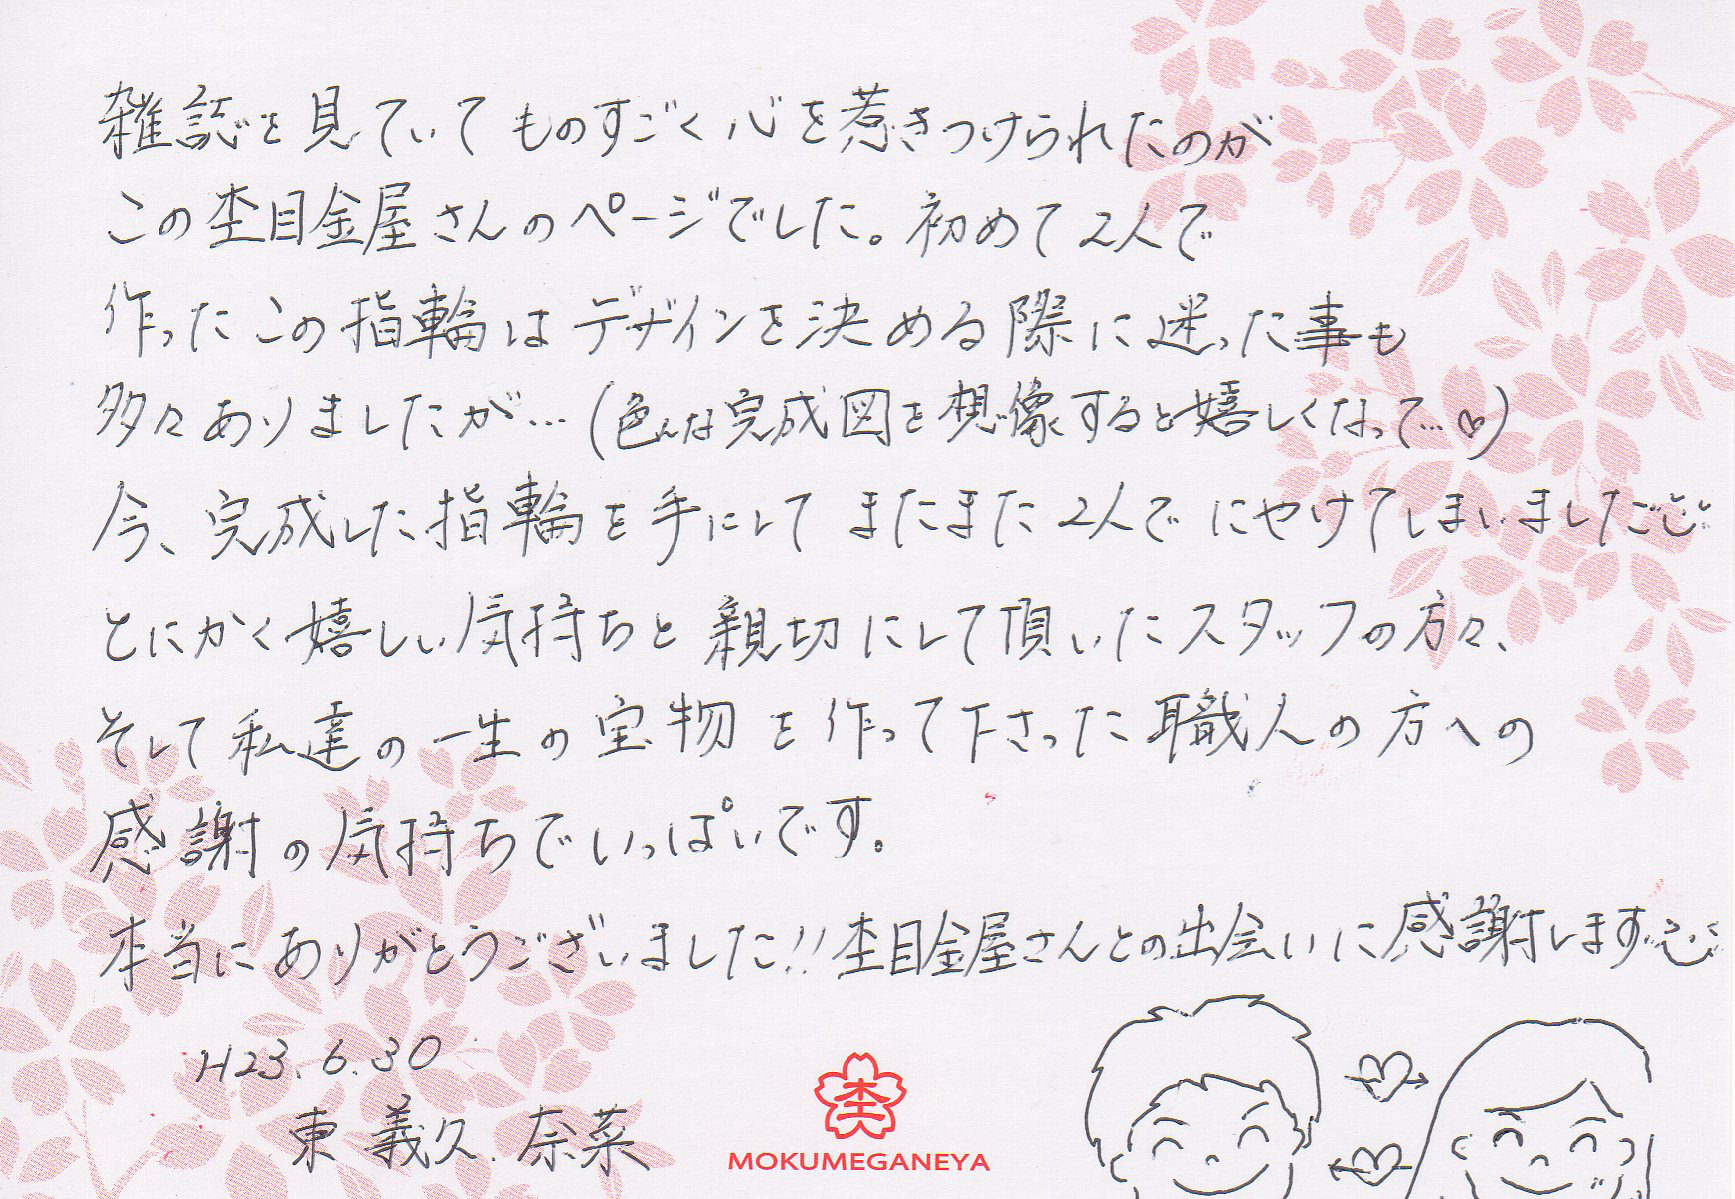 雑誌を見ていてものすごく心を惹きつけられたのが
この杢目金屋さんのページでした。初めて2人で
作ったこの指輪はデザインを決める際に迷った事も
多々ありましたが…(色んな完成図を想像すると嬉しくなって…♡)
今、完成した指輪を手にしてまたまた2人でにやけてしまいました
とにかく嬉しい気持ちと親切にして頂いたスタッフの方々、
そして私達の一生の宝物を作って下さった職人の方への
感謝の気持ちでいっぱいです。
本当にありがとうございました!!杢目金屋さんとの出会いに感謝します
H23.6.30
東 義久.奈菜
杢
MOKUMEGANEYA